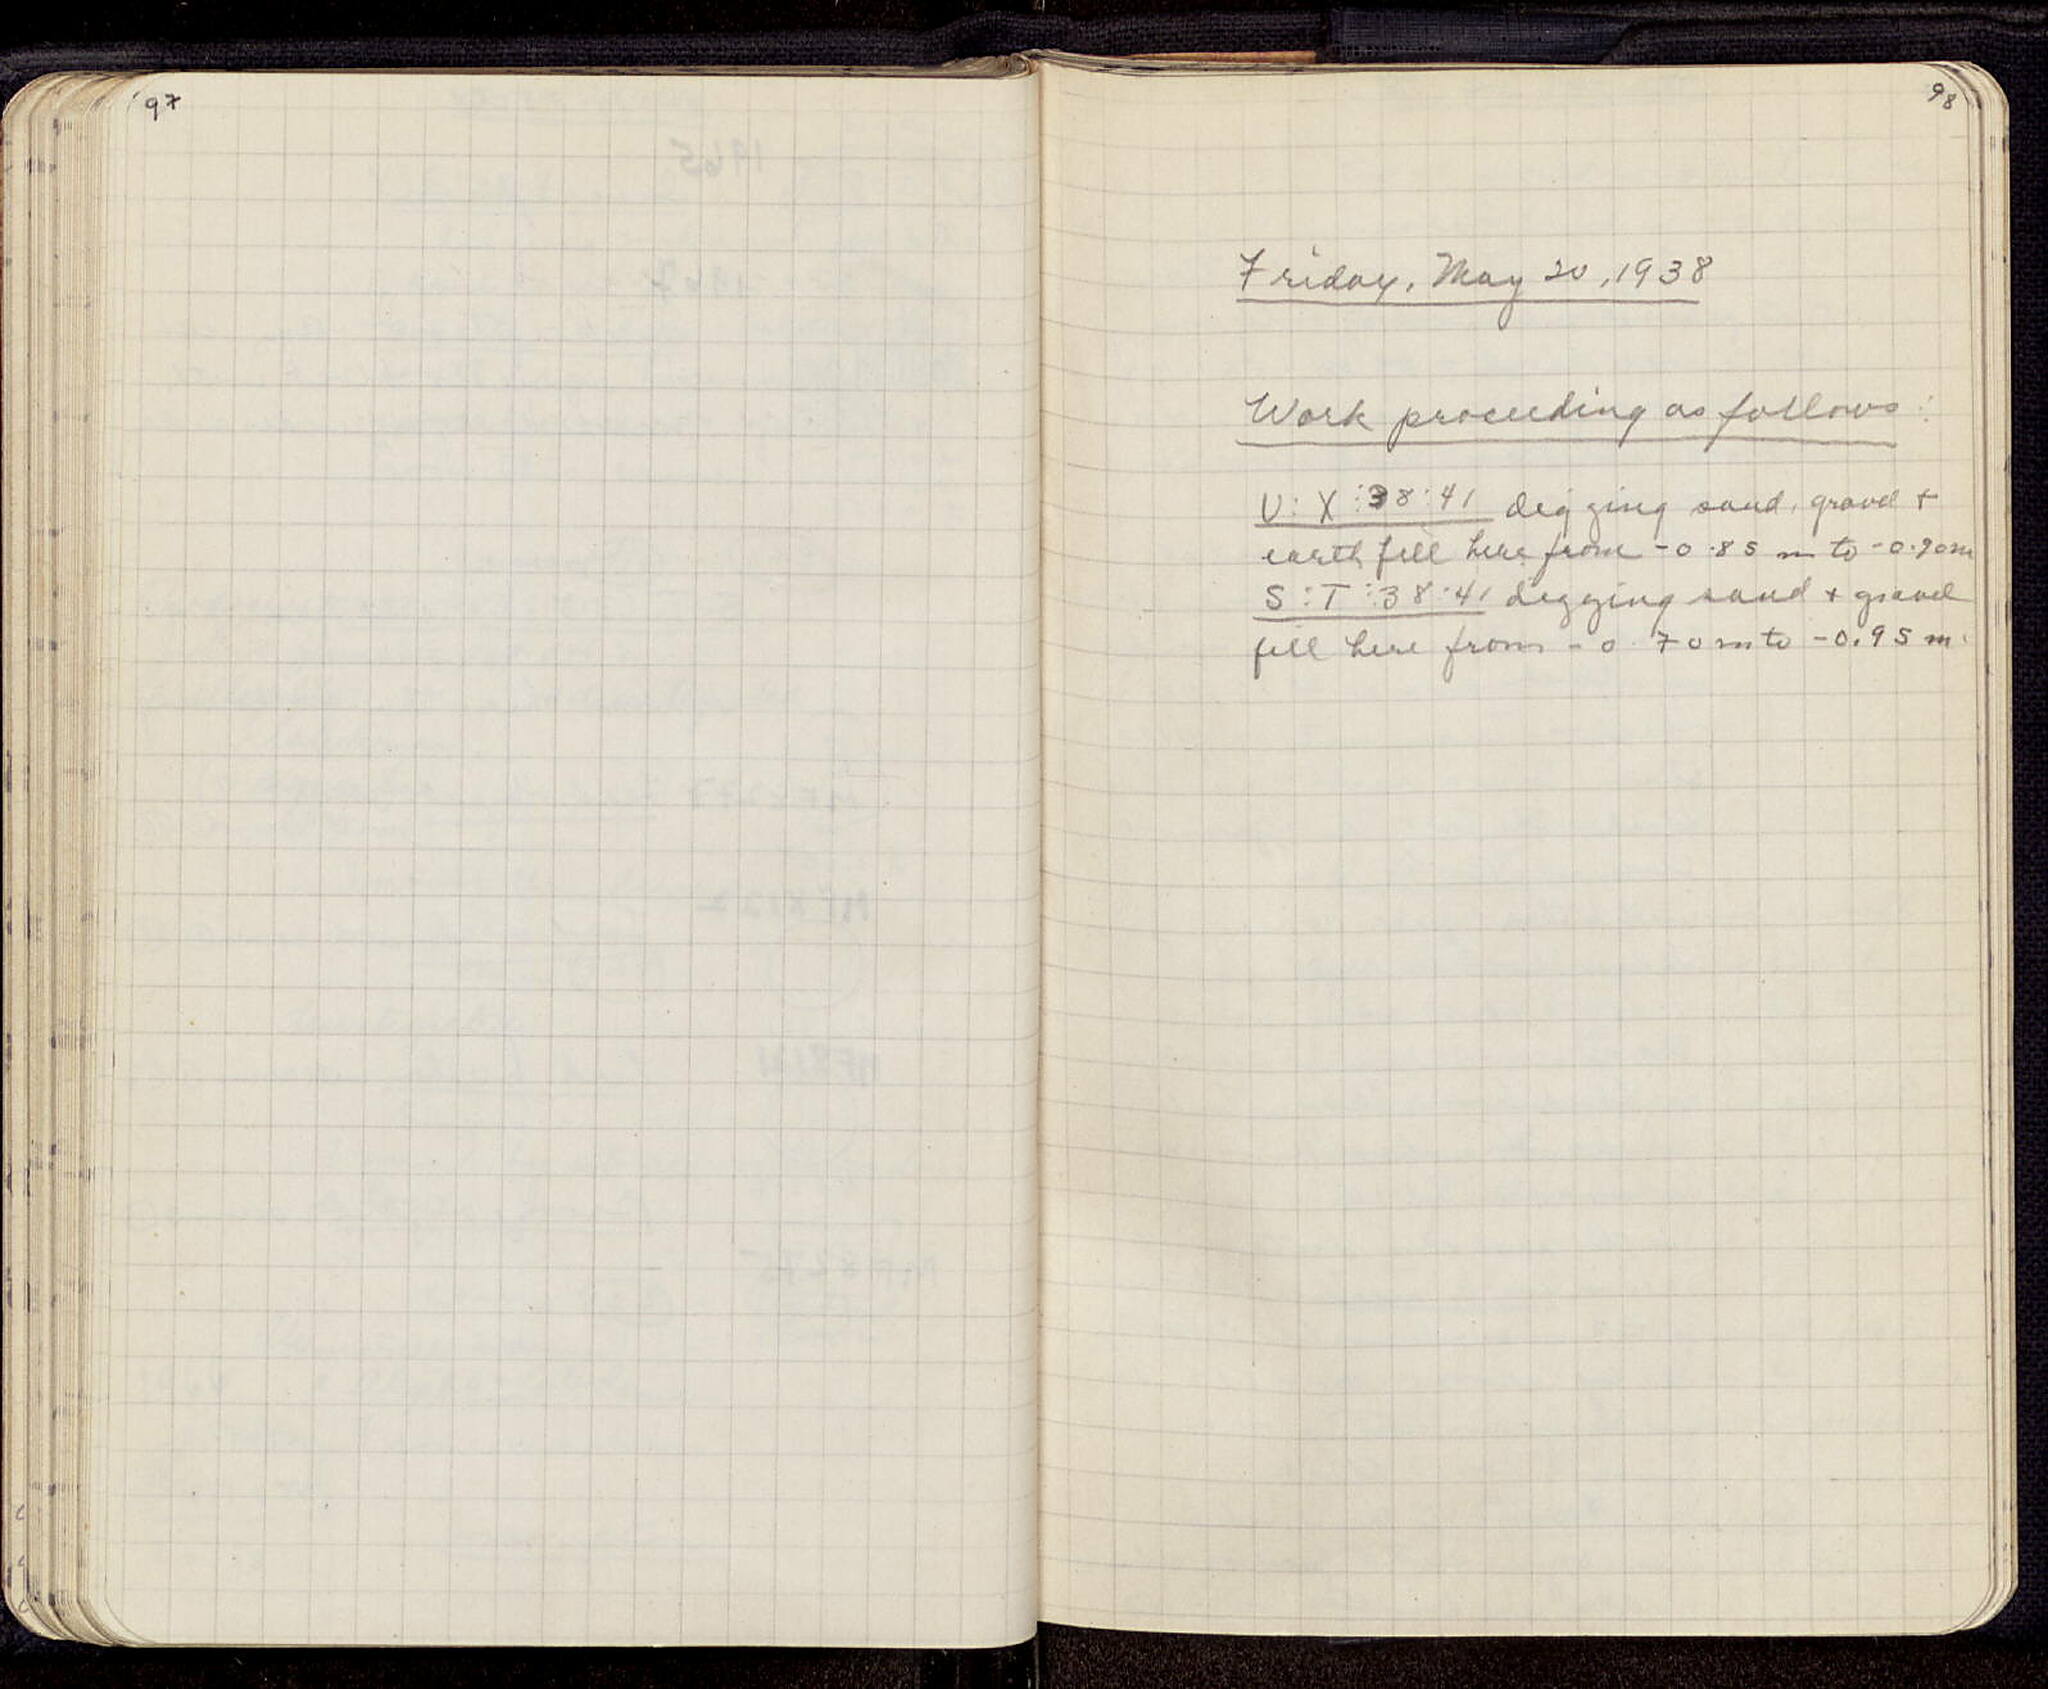 97
98
Friday, May 20, 1938
Work proceeding as follows:
U:X:38:41 digging sand, gravel +
earth fill here from -0.85 m to -0.90m
S:T:38:41 digging sand + gravel
fill here from -0.70 m to -0.95 m.